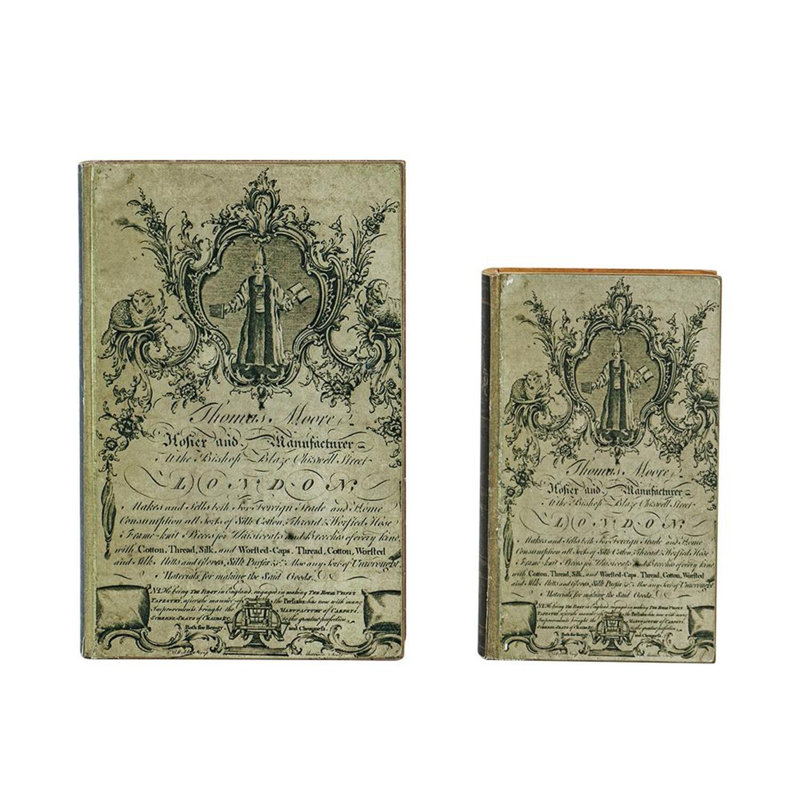 Thomas Moore
Hosier and Manufacturer
At the Bishop Blaze Chiswell Street
LONDON
Makes and Sells both For Foreign Trade and Home
Consumption all Sorts of Silk Cotton Thread & Worsted Hose
Frame-knit Pieces for Waistcoats and Breeches of every kind
with Cotton, Thread, Silk, and Worsted-Caps, Thread, Cotton, Worsted
and Silk Mitts and Gloves, Silk Purses &c. Also any Sort of Unwrought
Materials for making the Said Goods &c.
being the First in England engaged in making
Improvements brought the MANUFACTURE of CARPETS
to the greatest perfection
Both for Beauty and Cheapness
Thomas Moore
Hosier and Manufacturer
At the Bishop Blaze Chiswell Street
LONDON
Makes and Sells both For Foreign Trade and Home
Consumption all Sorts of Silk Cotton Thread & Worsted Hose
Frame-knit Pieces for Waistcoats and Breeches of every kind
with Cotton, Thread, Silk, and Worsted-Caps, Thread, Cotton, Worsted
and Silk Mitts and Gloves, Silk Purses &c. Also any Sort of Unwrought
Materials for making the Said Goods &c.
being the First in England engaged in making
Improvements brought the MANUFACTURE of CARPETS
to the greatest perfection
Both for Beauty and Cheapness